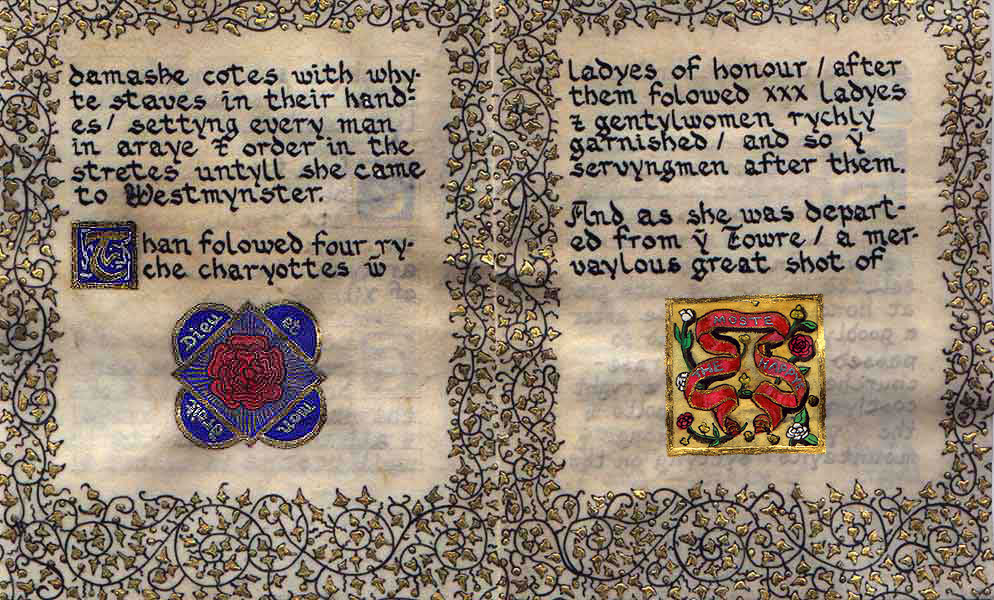 damaske cotes with why-
te staves in their hand-
es/ settyng every man
in araye ⁊ order in the
stretes untyll she came
to Westmynster.
Than folowed four ry-
che charyottes w̄
Dieu et
Mon
Droit
ladyes of honour / after
them folowed xxx ladyes
⁊ gentylwomen rychly
garnished / and so ȳ
servyngmen after them.
And as she was depart-
ed from ȳ Towre / a mer-
vaylous great shot of
MOSTE
THE HAPPY